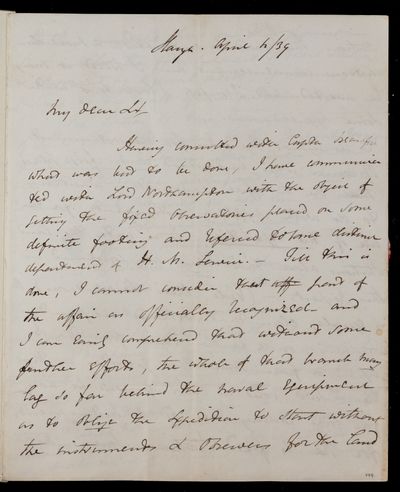 April 4/39
My dear Sir
Having consulted with Capta
what was best to be done, I have communica
ted with Lord Northampton with the object of
getting the fixed Observatories placed on some
definite footing and referred to some distinct
department of H. M. Service. - Till this is
done, I cannot consider that part of
the affair as officially recognized - and
I can easily comprehend that without some
further efforts, the whole of that branch may
lag so far behind the naval equipment
as to oblige the Expedition to start without
the instruments & Observers for the land